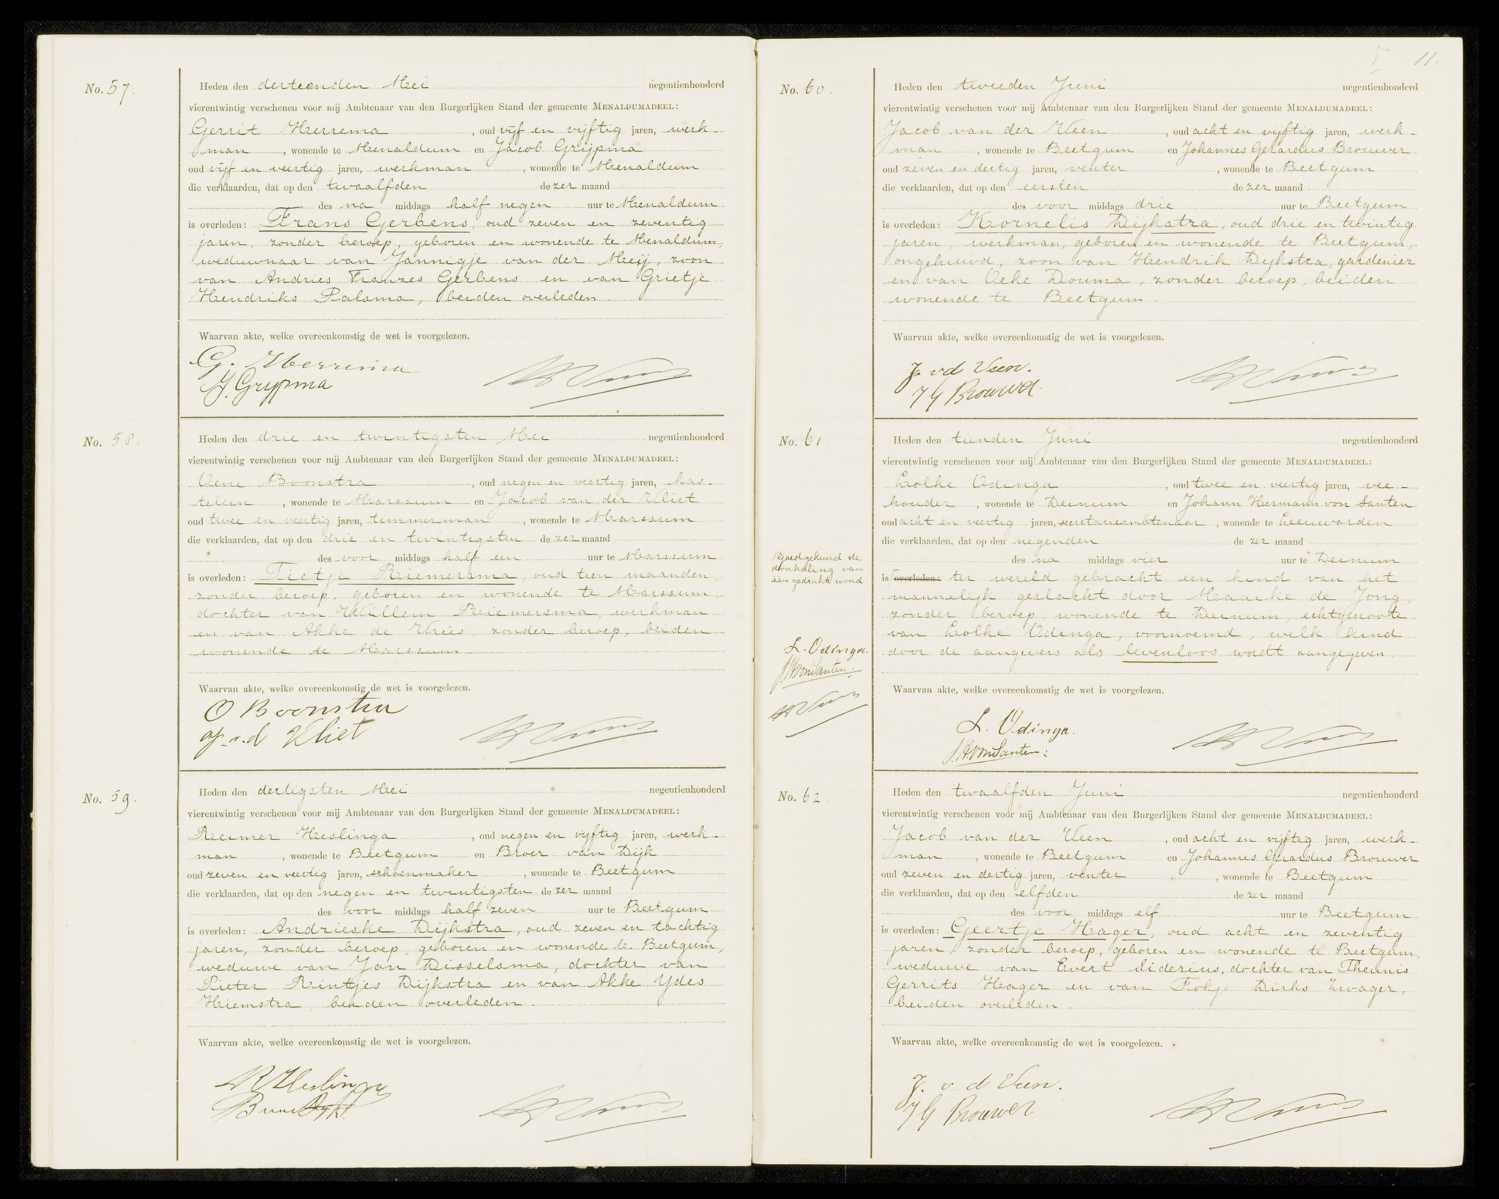 No. 57.
Heden den dertienden Mei negentienhonderd
vierentwintig verschenen voor mij Ambtenaar van den Burgerlijken Stand der gemeente MENALDUMADEEL:
Gerrit Herrema, oud vijf en vijftig jaren, werk-
man, wonende te Menaldum en Jacob Grijpma
oud vijf en veertig jaren, werkman, wonende te Menaldum
die verklaarden, dat op den twaalfden dezer maand
des na middags half negen uur te Menaldum
is overleden: Frans Gerbens, oud zeven en zeventig
jaren, zonder beroep, geboren en wonende te Menaldum,
weduwnaar van Jannegje van der Meij, zoon
van Andries Franzes Gerbens en van Grietje
Hendriks Palsma, beiden overleden.
Waarvan akte, welke overeenkomstig de wet is voorgelezen.
G. Herrema
J. Grijpma
No. 58.
Heden den drie en twintigsten Mei negentienhonderd
vierentwintig verschenen voor mij Ambtenaar van den Burgerlijken Stand der gemeente MENALDUMADEEL:
Oene Boonstra, oud negen en veertig jaren, kas-
telein, wonende te Marssum en Jacob van der Vliet
oud twee en veertig jaren, timmerman, wonende te Marssum
die verklaarden, dat op den drie en twintigsten dezer maand
des voor middags half een uur te Marssum
is overleden: Tietje Reiemersma, oud tien maanden,
zonder beroep, geboren en wonende te Marssum,
dochter van Willem Reiemersma, werkman
en van Akke de Vries, zonder beroep, beiden
wonende te Marssum
Waarvan akte, welke overeenkomstig de wet is voorgelezen.
O Boonstra
v.d Vliet
No. 59.
Heden den dertigsten Mei negentienhonderd
vierentwintig verschenen voor mij Ambtenaar van den Burgerlijken Stand der gemeente MENALDUMADEEL:
Reimer Heslinga, oud negen en vijftig jaren, werk-
man, wonende te Beetgum en Broer van Dijk
oud zeven en veertig jaren, schoenmaker, wonende te Beetgum
die verklaarden, dat op den negen en twintigsten dezer maand
des voor middags half zeven uur te Beetgum
is overleden: Andrieske Dijkstra, oud zeven en tachtig
jaren, zonder beroep, geboren en wonende te Beetgum,
weduwe van Jan Disselsma, dochter van
Pieter Rintjes Dijkstra en van Akke Ydes
Hiemstra, beiden overleden.
Waarvan akte, welke overeenkomstig de wet is voorgelezen.
R Heslinga
11.
No. 60.
Heden den tweeden Juni negentienhonderd
vierentwintig verschenen voor mij Ambtenaar van den Burgerlijken Stand der gemeente MENALDUMADEEL:
Jacob van der Veen, oud acht en vijftig jaren, werk-
man, wonende te Beetgum en Johannes Gerardus Brouwer
oud zeven en dertig jaren, venter, wonende te Beetgum
die verklaarden, dat op den eersten dezer maand
des voor middags drie uur te Beetgum
is overleden: Kornelis Dijkstra, oud drie en twintig
jaren, werkman, geboren en wonende te Beetgum,
ongehuwd, zoon van Hendrik Dijkstra, gardenier
en van Aeke Douma, zonder beroep, beiden
wonende te Beetgum.
Waarvan akte, welke overeenkomstig de wet is voorgelezen.
J. v d Veen.
J G Brouwer
No. 61
Heden den tienden Juni negentienhonderd
vierentwintig verschenen voor mij Ambtenaar van den Burgerlijken Stand der gemeente MENALDUMADEEL:
Lolke Odinga, oud twee en veertig jaren, vee-
houder, wonende te Deinum en Johann Hermann von Santen
oud acht en veertig jaren, secretarieambtenaar, wonende te Leeuwarden
die verklaarden, dat op den negenden dezer maand
des na middags vier uur te Deinum
is overleden: ter wereld gebracht een kind van het
mannelijk geslacht door Maaike de Jong,
zonder beroep, wonende te Deinum, echtgenoote
van Lolke Odinga, voornoemd, welk kind
door de aangevers als levenloos wordt aangegeven.
Waarvan akte, welke overeenkomstig de wet is voorgelezen.
Goedgekeurd de
doorhaling van
een gedrukt woord
L. Odinga.
JHvonSanten.
L. Odinga.
JHvonSanten.
No. 62
Heden den twaalfden Juni negentienhonderd
vierentwintig verschenen voor mij Ambtenaar van den Burgerlijken Stand der gemeente MENALDUMADEEL:
Jacob van der Veen, oud acht en vijftig jaren, werk-
man, wonende te Beetgum en Johannes Gerardus Brouwer
oud zeven en dertig jaren, venter, wonende te Beetgum
die verklaarden, dat op den elfden dezer maand
des voor middags elf uur te Beetgum
is overleden: Geertje Hager, oud acht en zeventig
jaren, zonder beroep, geboren en wonende te Beetgum,
weduwe van Evert Sidereus, dochter van Theunis
Gerrits Hager en van Fokje Dirks Zwager,
beiden overleden.
Waarvan akte, welke overeenkomstig de wet is voorgelezen.
J. v d Veen.
J G Brouwer